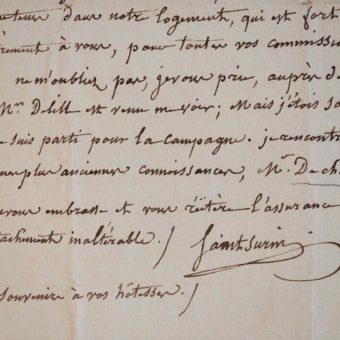 dans notre logement, qui est fort
à vous, pour toutes vos commissio
ne m'oubliez pas, je vous prie, auprès d
Mr. Delill est venu me voir; Mais j'étois so
e suis parti pour la Campagne. je rencontr
plus anciennes connoissances, Mr. De ch
vous embrasse et vous réitère l'assurance
tachement inaltérable. /
Saintsurin
souvenirs à vos hôtesses. /